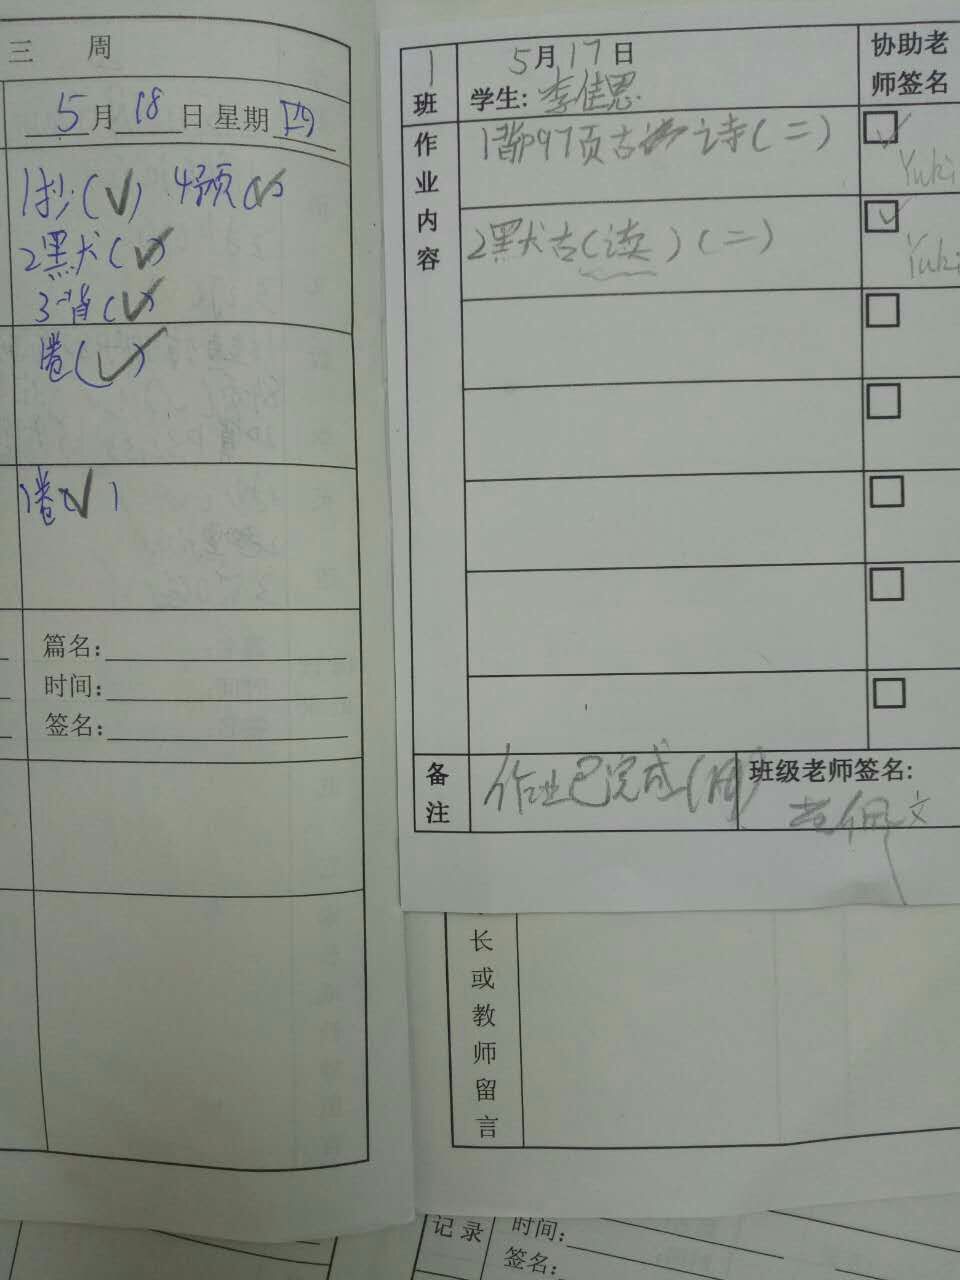 三 周
5月18日 星期四
1抄(✓) 4预(✓)
2黑犬(✓)
3背(✓)
卷(✓)
1卷(✓)
篇名:
时间:
签名:
1班
5月17日
学生: 李佳恩
协助老师签名
作业内容
1背P97页古诗(二)
Yuki
2黑犬古(读)(二)
Yuki
备注
作业已完成(周)
班级老师签名:
文
长或教师留言
记录
时间:
签名: